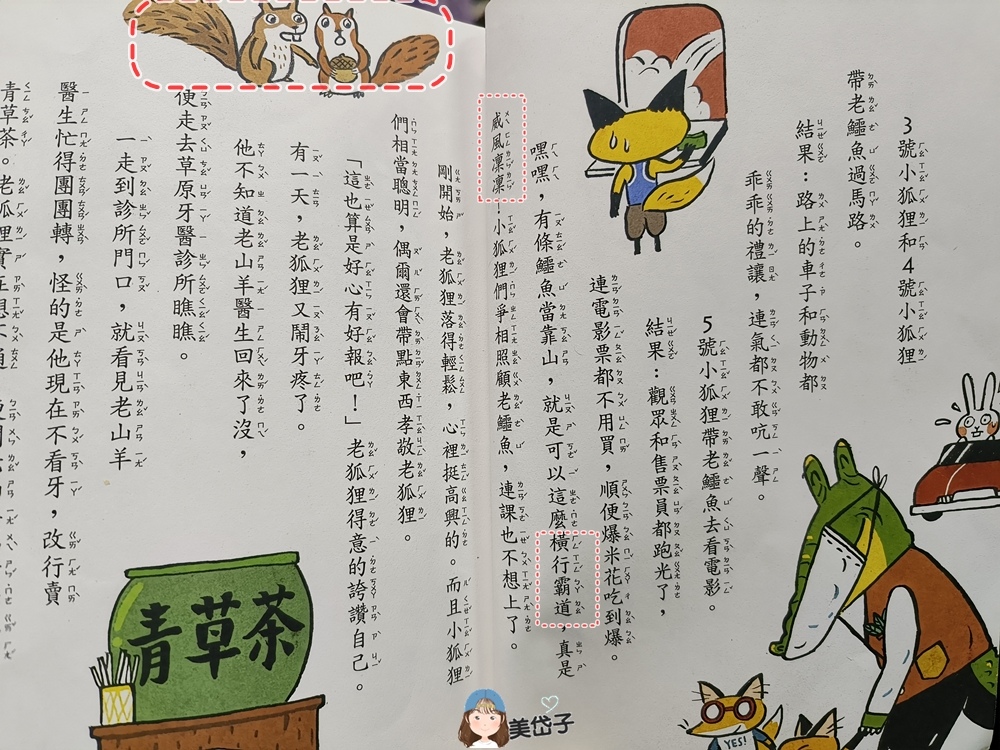 3號小狐狸和4號小狐狸
帶老鱷魚過馬路。
結果：路上的車子和動物都
乖乖的禮讓，連氣都不敢吭一聲。
5號小狐狸帶老鱷魚去看電影。
結果：觀眾和售票員都跑光了，
連電影票都不用買，順便爆米花吃到爆。
嘿嘿，有條鱷魚當靠山，就是可以這麼橫行霸道，真是
威風凜凜！小狐狸們爭相照顧老鱷魚，連課也不想上了。
剛開始，老狐狸落得輕鬆，心裡挺高興的。而且小狐狸
們相當聰明，偶爾還會帶點東西孝敬老狐狸。
「這也算是好心有好報吧！」老狐狸得意的誇讚自己。
有一天，老狐狸又鬧牙疼了。
他不知道老山羊醫生回來了沒，
便走去草原牙醫診所瞧瞧。
一走到診所門口，就看見老山羊
醫生忙得團團轉，怪的是他現在不看牙，改行賣
青草茶。老狐狸實在想不通
青草茶
YES!
美岱子